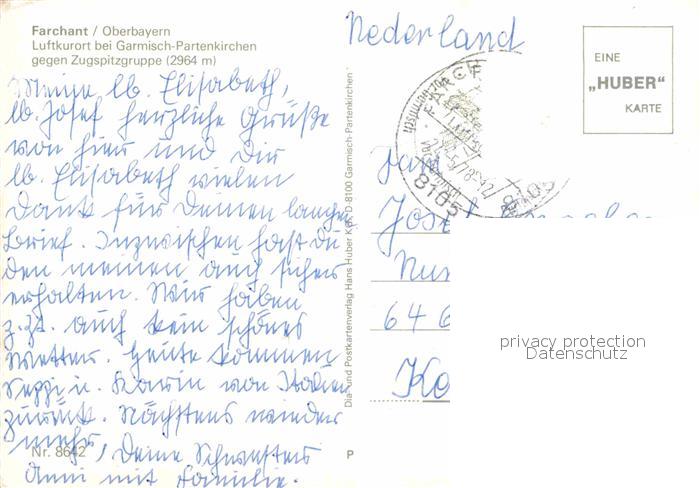 Farchant / Oberbayern
Luftkurort bei Garmisch-Partenkirchen
gegen Zugspitzgruppe (2964 m)
Meine lb. Elisabeth,
lb. Josef herzliche Grüße
von hier und dir
lb. Elisabeth vielen
Dank für Deinen langen
Brief. Inzwischen hast du
den meinen auch sicher
erhalten. Wir haben
z.Zt. auch kein schönes
Wetter. Heute kommen
Seppi u. Karin von Italien
zurück. Nächstens wieder
mehr, Deine Schwester
Anni mit Familie.
Nr. 8642
Dia- und Postkartenverlag Hans Huber KG, D 8100 Garmisch-Partenkirchen
P
Nederland
EINE
„HUBER"
KARTE
FARCH
8105
8105
Jan
Josef
646
privacy protection
Datenschutz